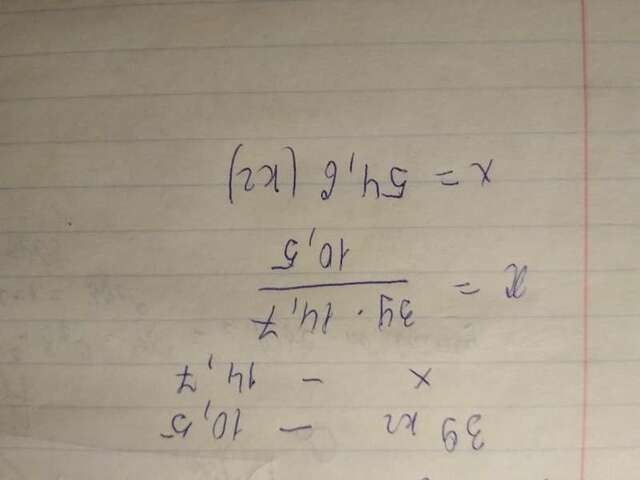 39 кг – 10,5
x – 14,7
x = 39 · 14,7 / 10,5
x = 54,6 (кг)